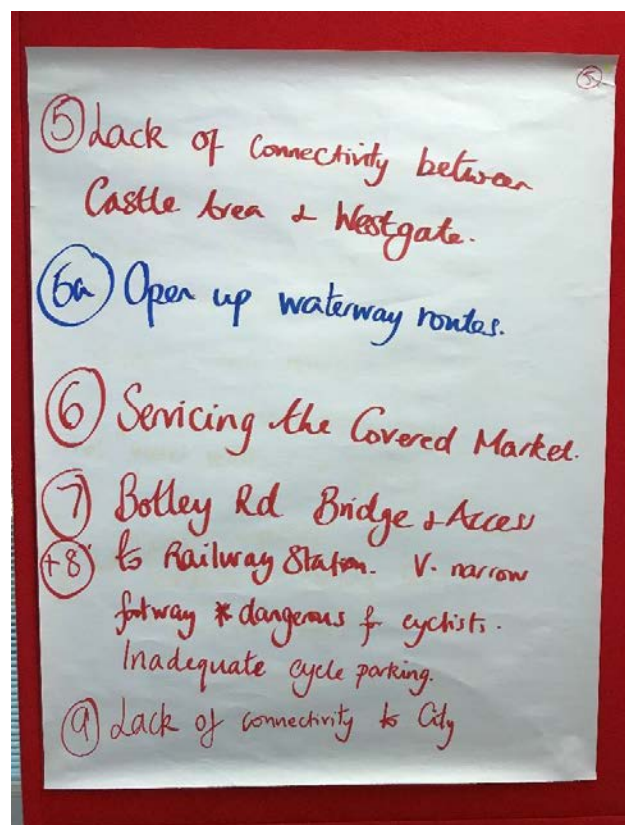 5
5 Lack of Connectivity between
Castle Area & Westgate.
6a Open up waterway routes.
6 Servicing the Covered Market.
7 Botley Rd Bridge & Access
+8 to Railway Station. V. narrow
footway * dangerous for cyclists.
Inadequate cycle parking.
9 Lack of connectivity to City